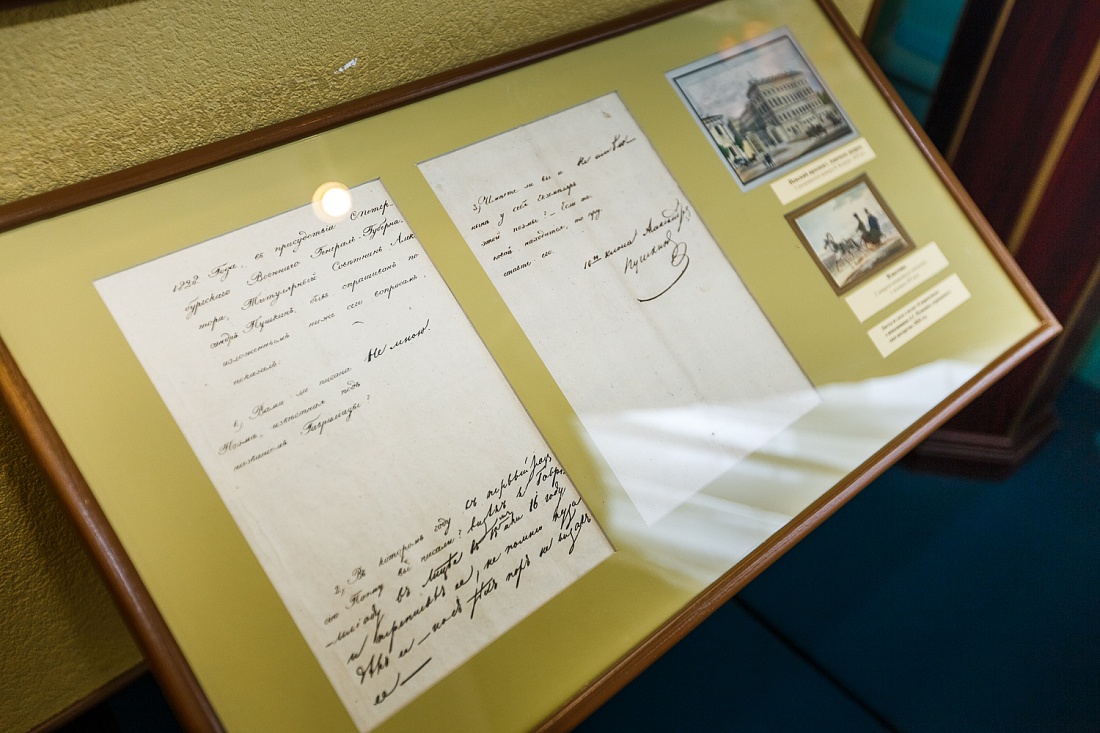 1828 Года, въ присудствіи С.Петер-
бургскаго Военнаго Генералъ-Губерна-
тора, Титулярный Совѣтникъ Алек-
сандръ Пушкинъ былъ спрашиванъ по
изложеннымъ ниже сего вопросамъ и
показалъ:
1, Вами ли писана Не мною.
Поэма, извѣстная подъ
названіемъ Гавриліады?
2, Въ которомъ году въ первый разъ
сію Поэму вы писали? видѣлъ я Гаври-
-ліаду въ Лицеѣ въ 15мъ или 16 году
и переписалъ ее; не помню куда
дѣлъ ее — но съ тѣхъ поръ не видалъ
ее —
3, Имѣете ли вы и Не имѣю —
нынѣ у себя экземпляръ
этой поэмы? — Если та-
ковой находится, то пред-
ставьте его.
10го Александръ
Пушкинъ